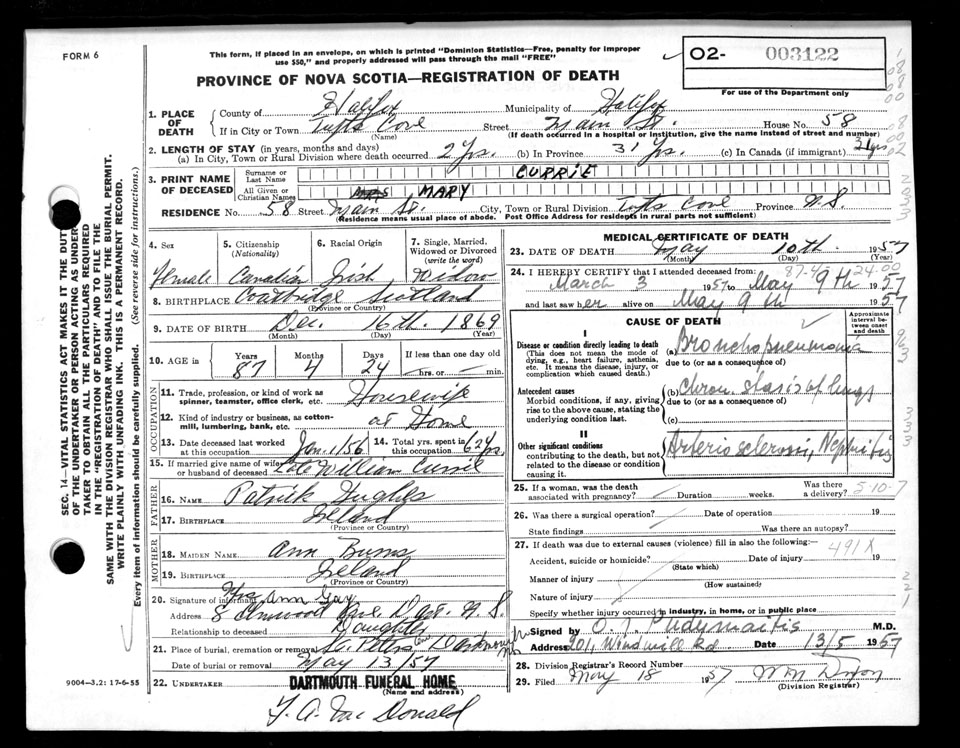 FORM 6
This form, if placed in an envelope, on which is printed "Dominion Statistics—Free, penalty for improper
use $50," and properly addressed will pass through the mail "FREE"
O2- 003122
For use of the Department only
PROVINCE OF NOVA SCOTIA—REGISTRATION OF DEATH
1. PLACE OF DEATH
County of Halifax Municipality of Halifax
If in City or Town Tufts Cove Street Main St. House No. 58
(Name) (If death occurred in a hospital or institution, give the name instead of street and number)
2. LENGTH OF STAY (in years, months and days)
(a) In City, Town or Rural Division where death occurred 2 Yrs. (b) In Province 31 Yrs. (c) In Canada (if immigrant) 31 yrs
3. PRINT NAME OF DECEASED
Surname or Last Name CURRIE
All Given or Christian Names MRS MARY
RESIDENCE No. 58 Street Main St. City, Town or Rural Division Tufts Cove Province N.S.
(Residence means usual place of abode. Post Office Address for residents in rural parts not sufficient)
4. Sex
Female
5. Citizenship (Nationality)
Canadian
6. Racial Origin
Irish
7. Single, Married, Widowed or Divorced (write the word)
Widow
8. BIRTHPLACE Coatbridge Scotland
(Province or Country)
9. DATE OF BIRTH Dec. 16th. 1869
(Month) (Day) (Year)
10. AGE in Years Months Days If less than one day
87 4 24 hrs. or min.
OCCUPATION
11. Trade, profession, or kind of work as spinner, teamster, office clerk, etc. Housewife
12. Kind of industry or business, as cotton-mill, lumbering, bank, etc. at Home
13. Date deceased last worked at this occupation Jan. 1/56
14. Total yrs. spent in this occupation 62 Yrs.
15. If married give name of wife or husband of deceased Late William Currie
FATHER
16. NAME Patrick Hughes
17. BIRTHPLACE Ireland
(Province or Country)
MOTHER
18. MAIDEN NAME Ann Burns
19. BIRTHPLACE Ireland
(Province or Country)
20. Signature of informant Mrs Ann Gay
Address 8 Elmwood Ave. Dart. N.S.
Relationship to deceased Daughter
21. Place of burial, cremation or removal St. Peters Dartmouth
Date of burial or removal May 13/57
22. UNDERTAKER DARTMOUTH FUNERAL HOME
(Name and address)
9004—3.2: 17-6-55
MEDICAL CERTIFICATE OF DEATH
23. DATE OF DEATH May 10th. 1957
(Month) (Day)
87-4 24-00
24. I HEREBY CERTIFY that I attended deceased from:
March 3 1957 to May 9th 1957
and last saw her alive on May 9th 1957
CAUSE OF DEATH
Approximate interval between onset and death
I
Disease or condition directly leading to death
(This does not mean the mode of dying, e.g., heart failure, asthenia, etc. It means the disease, injury, or complication which caused death.)
(a) Bronchopneumonia
due to (or as a consequence of)
Antecedent causes
Morbid conditions, if any, giving rise to the above cause, stating the underlying condition last.
(b) Chron. stasis of lungs
due to (or as a consequence of)
(c)
II
Other significant conditions
contributing to the death, but not related to the disease or condition causing it.
Arteriosclerosis, Nephritis
25. If a woman, was the death associated with pregnancy? Duration weeks. Was there a delivery?
5-10-7
26. Was there a surgical operation? Date of operation 19
State findings Was there an autopsy?
27. If death was due to external causes (violence) fill in also the following:—
491X
Accident, suicide or homicide? Date of injury 19
(State which)
Manner of injury
(How sustained)
Nature of injury
Specify whether injury occurred in industry, in home, or in public place
Signed by O. J. Pudymaitis M.D.
Address 201 Windmill Rd Date 13/5 1957
28. Division Registrar's Record Number
29. Filed May 18 1957
(Division Registrar)
SEC. 14—VITAL STATISTICS ACT MAKES IT THE DUTY
OF THE UNDERTAKER OR PERSON ACTING AS UNDER-
TAKER TO OBTAIN ALL THE PARTICULARS REQUIRED
IN THE "REGISTRATION OF DEATH" AND TO FILE THE
SAME WITH THE DIVISION REGISTRAR WHO SHALL ISSUE THE BURIAL PERMIT.
WRITE PLAINLY WITH UNFADING INK. THIS IS A PERMANENT RECORD.
Every item of information should be carefully supplied. (See reverse side for instructions.)